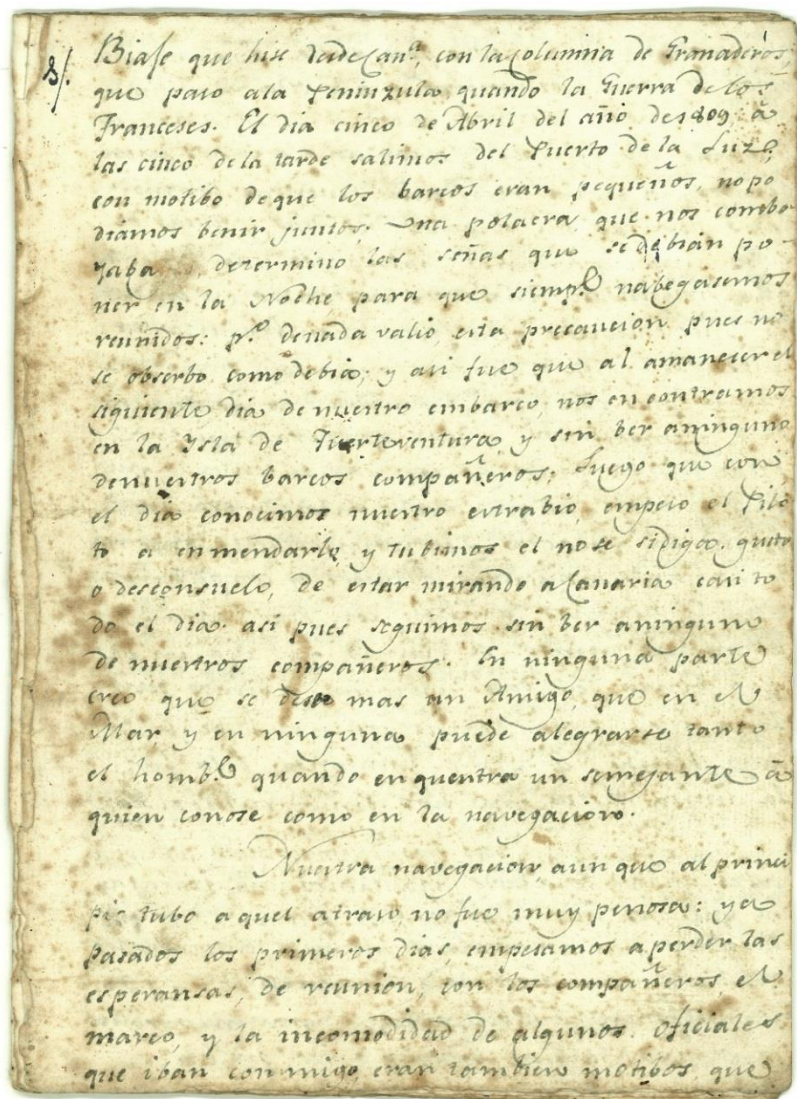 8/.
Biaje que hise desde Can.ª, con la Columna de Granaderos,
que paso ala Peninzula quando la Guerra de los
Franceses. El dia cinco de Abril del año de 1809 á
las cinco de la tarde salimos del Puerto de la Luz,
con motibo deque los barcos eran pequeños, no po
diámos benir juntos. Una polacra que nos combo
yaba, determino las señas que se debián po-
ner en la Noche para que siemp.e nabegasemos
reunidos: p.o denada valio, esta precaucion pues no
se obserbo como debia; y asi fue que al amanecer el
siguiente dia de nuestro embarco, nos encontramos
en la Ysla de Fuerteventura y sin ber aninguno
denuestros barcos compañeros; Luego que con
el dia conocimos nuestro estrabio, empeso el Pilo
to a enmendarle, y tubimos el nose sidiga, gusto
o desconsuelo, de estar mirando a Canaria casi to
do el dia. asi pues seguimos sin ber aninguno
de nuestros compañeros. En ninguna parte
creo que se desee mas un Amigo, que en el
Mar, y en ninguna puede alegrarse tanto
el homb.e quando enquentra un semejante á
quien conose como en la navegacion.
Nuestra navegacion, aun que al princi
pio tubo aquel atraso, no fue muy penosa: ya
pasados los primeros dias, empesamos aperder las
esperansas, de reunion, con los compañeros, el
mareo, y la incomodidad de algunos oficiales
que iban conmigo, eran tambien motibos, que